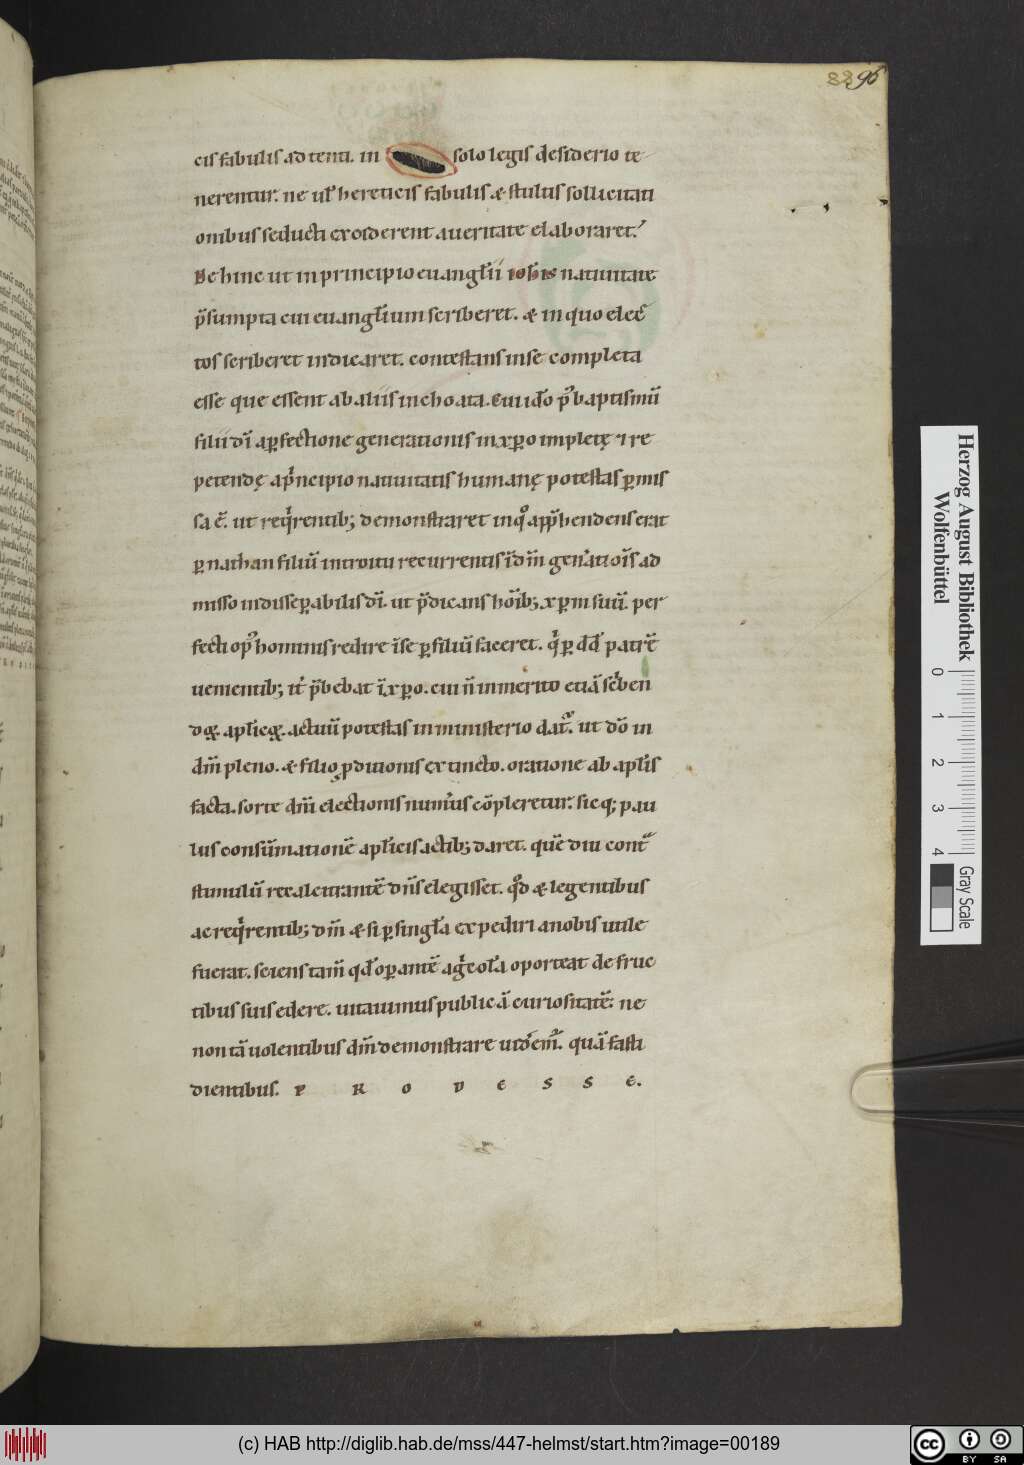 88 96
cis fabulis adtenti. in solo legis desiderio te
nerentur. ne ul̓ hereticis fabulis & stultis sollicitati
onibus seducti excederent a ueritate elaboraret.
Dehinc ut in principio euangl̄ii ioh̄is natiuitate
p̄sumpta cui euangl̄ium scriberet. & in quo elec̄
tos scriberet indicaret. contestans in se completa
esse que essent ab aliis inchoata. Cui id̓o p̓ baptismū
filii dī a ꝑfectione generationis in xp̄o impletę ⁊ re
petendę a pͥncipio natiuitatis humanę potestas ꝑmis
sa ē. ut reqͥrentib; demonstraret in qͦ app̄hendens erat
ꝑ nathan filiū introitu recurrentis ī dm̄ gen̓ationīs ad
misso indisseꝑabilis dī. ut p̄dicans hoīb; xp̄m suū. per
fecti op̓ hominis redire īse ꝑ filiū faceret. qͥ ꝑ dd̄ patrē
uenientib; it̓ p̄bebat ī xp̄o. cui n̄ inmerito etiā sc̓ben
doꝝ apl̓icoꝝ. actuū potestas in ministerio dat̓. ut dō in
dm̄ pleno. & filio ꝑditionis extincto. oratione ab apl̄is
facta. sorte dm̄ electionis num̓us cōpleretur. sicq; pau
lus consūmationē apl̓icis actib; daret. quē diu cont̄
stimulū recalcitrantē dn̄s elegisset. qͦd & legentibus
ac reqͥrentib; dm̄ & si ꝑ singl̓a expediri a nobis utile
fuerat. sciens tam̄ qd̄ oꝑantē agͥcol̄a oporteat de fruc
tibus suis edere. uitauimus publicā curiositatē. ne
non tā uolentibus dm̄ demonstrare uid̓em̓. quā fasti
dientibus. P R O D E S S E.
Herzog August Bibliothek
Wolfenbüttel
0 1 2 3 4
Gray Scale
(c) HAB http://diglib.hab.de/mss/447-helmst/start.htm?image=00189
cc BY SA